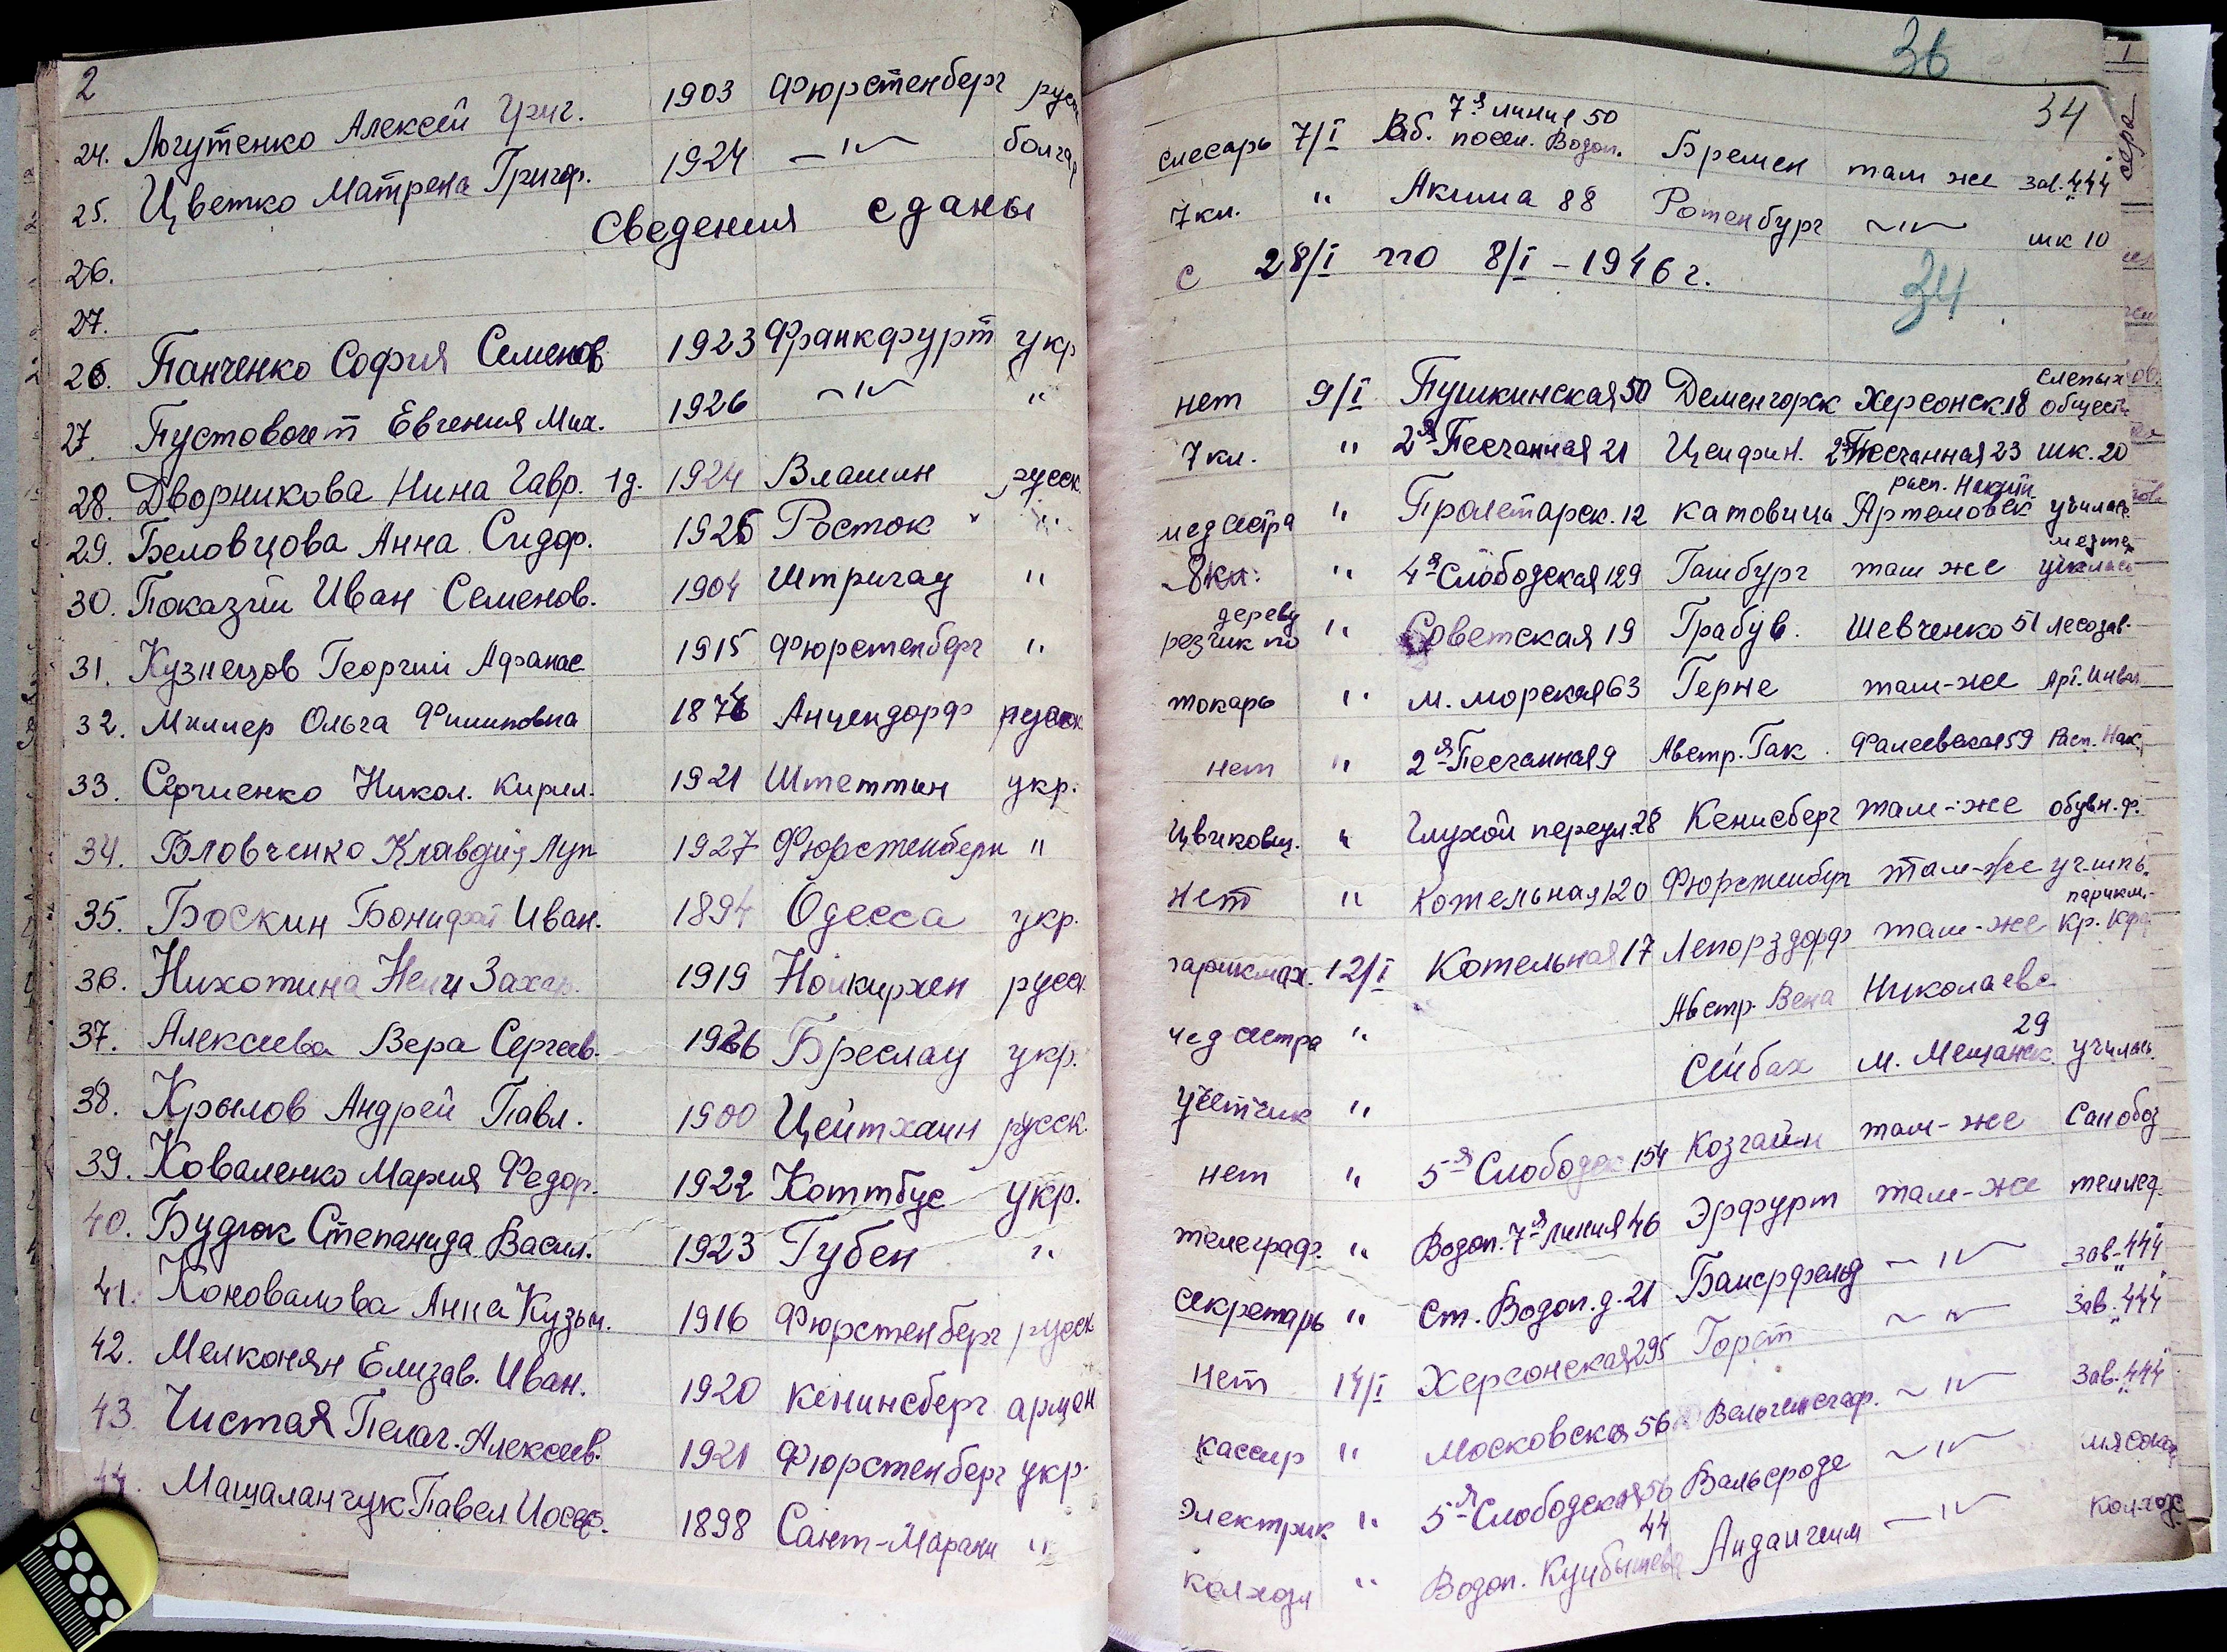 2
24. Логутенко Алексей Григ. 1903 Фюрстенберг русс
25. Цветко Матрена Григор. 1924 — " — болгар
Сведения сданы
26.
27.
26. Панченко София Семенов 1923 Франкфурт укр
27. Пустовойт Евгения Мих. 1926 — " — "
28. Дворникова Нина Гавр. 1д. 1924 Влашин русск.
29. Беловцова Анна Сидор. 1925 Росток "
30. Показий Иван Семенов. 1904 Штригау "
31. Кузнецов Георгий Афанас 1915 Фюрстенберг "
32. Миллер Ольга Филиповна 1876 Анцендорф русск
33. Сергиенко Никол. Кирил. 1921 Штеттин укр.
34. Вловченко Клавдия Луп 1927 Фюрстенберг "
35. Боскин Бонифат Иван. 1894 Одесса укр.
36. Никотина Нели Захар. 1919 Нойкирхен русск
37. Алексеева Вера Сергеев. 1926 Бреслау укр.
38. Крылов Андрей Павл. 1900 Цейтхаин русск.
39. Коваленко Мария Федор. 1922 Коттбус укр.
40. Будюк Степанида Васил. 1923 Губен "
41. Коновалова Анна Кузьм. 1916 Фюрстенберг русск
42. Мелконян Елизав. Иван. 1920 Кенинсберг армян
43. Чистая Пелаг. Алексеев. 1921 Фюрстенберг укр.
44. Машаланчук Павел Иосеф. 1898 Сант-Марани "
36
34
7я линия 50
слесарь 7/I Вб. посел. Водоп. Бремен там же зав. „444"
7 кл. " Акима 88 Ротенбург — " — шк 10
с 28/I по 8/I – 1946 г.
34
слепых
нет 9/I Пушкинская 50 Деменгорск Херсонск. 18 общест.
7 кл. " 2я Песчанная 21 Цейфин. 2я Песчанная 23 шк. 20
медсестра " Пролетарск. 12 Катовица Артемовск училась
8 кл. " 4я Слободская 129 Гамбург там же училась
дереву
резчик по " Советская 19 Грабув. Шевченко 51 лесозав.
токарь " М. Морская 63 Герне там-же Арт. Инвал
нет " 2я Песчанная 9 Австр. Гак. Фалеевская 59 Расп. Нак.
" Глухой переул 28 Кенисберг там-же обувн. ф.
нет " Котельная 120 Фюрстенбург там-же уч. шк.
парикм.
парикмах. 12/I Котельная 17 Лепорздорф там-же Кр.
медсестра " Австр. Вена Николаевс.
29
учетчик " Сейбах М. Мещанск. училась
нет " 5я Слободск 154 Козгайн там-же Санобоз
телеграф. " Водоп. 7я линия 46 Эрфурт там-же
секретарь " Ст. Водоп. д. 21 Баисрфельд — " — зав. „444"
нет 14/I Херсонская 295 Горст — " — Зав. „444"
кассир " Московская 56 — " — Зав. „444"
электрик " 5я Слободская 56 Вальсроде — " — мясоком
44
колхозн " Водоп. Куйбышева Андангеим — " — колхоз